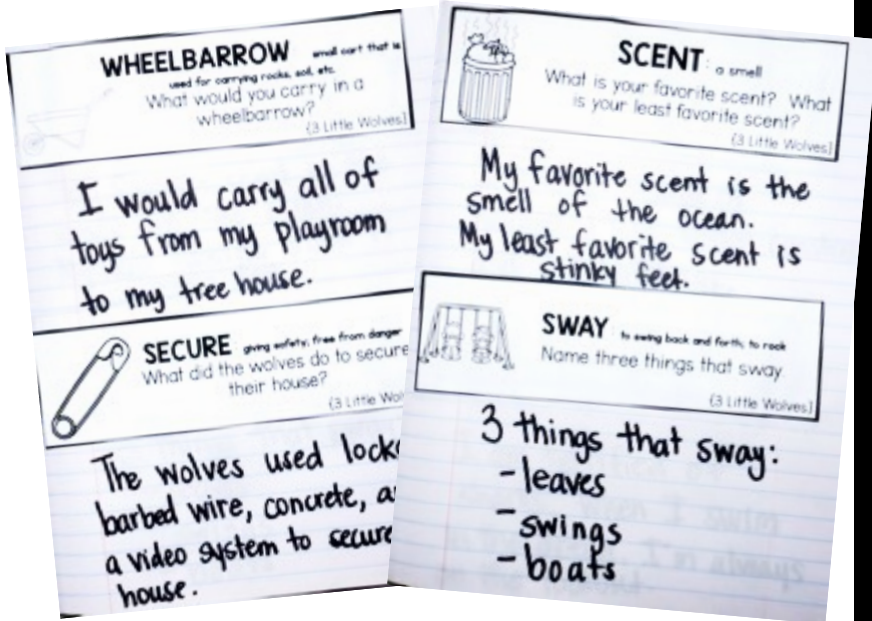 WHEELBARROW small cart that is
used for carrying rocks, soil, etc.
What would you carry in a
wheelbarrow?
{3 Little Wolves}
I would carry all of
toys from my playroom
to my tree house.
SECURE giving safety, free from danger
What did the wolves do to secure
their house?
{3 Little
The wolves used
barbed wire, concrete,
a video system to secure
house.
SCENT: a smell
What is your favorite scent? What
is your least favorite scent?
{3 Little Wolves}
My favorite scent is the
smell of the ocean.
My least favorite scent is
stinky feet.
SWAY to swing back and forth; to rock
Name three things that sway
{3 Little Wolves}
3 things that sway:
-leaves
-swings
-boats